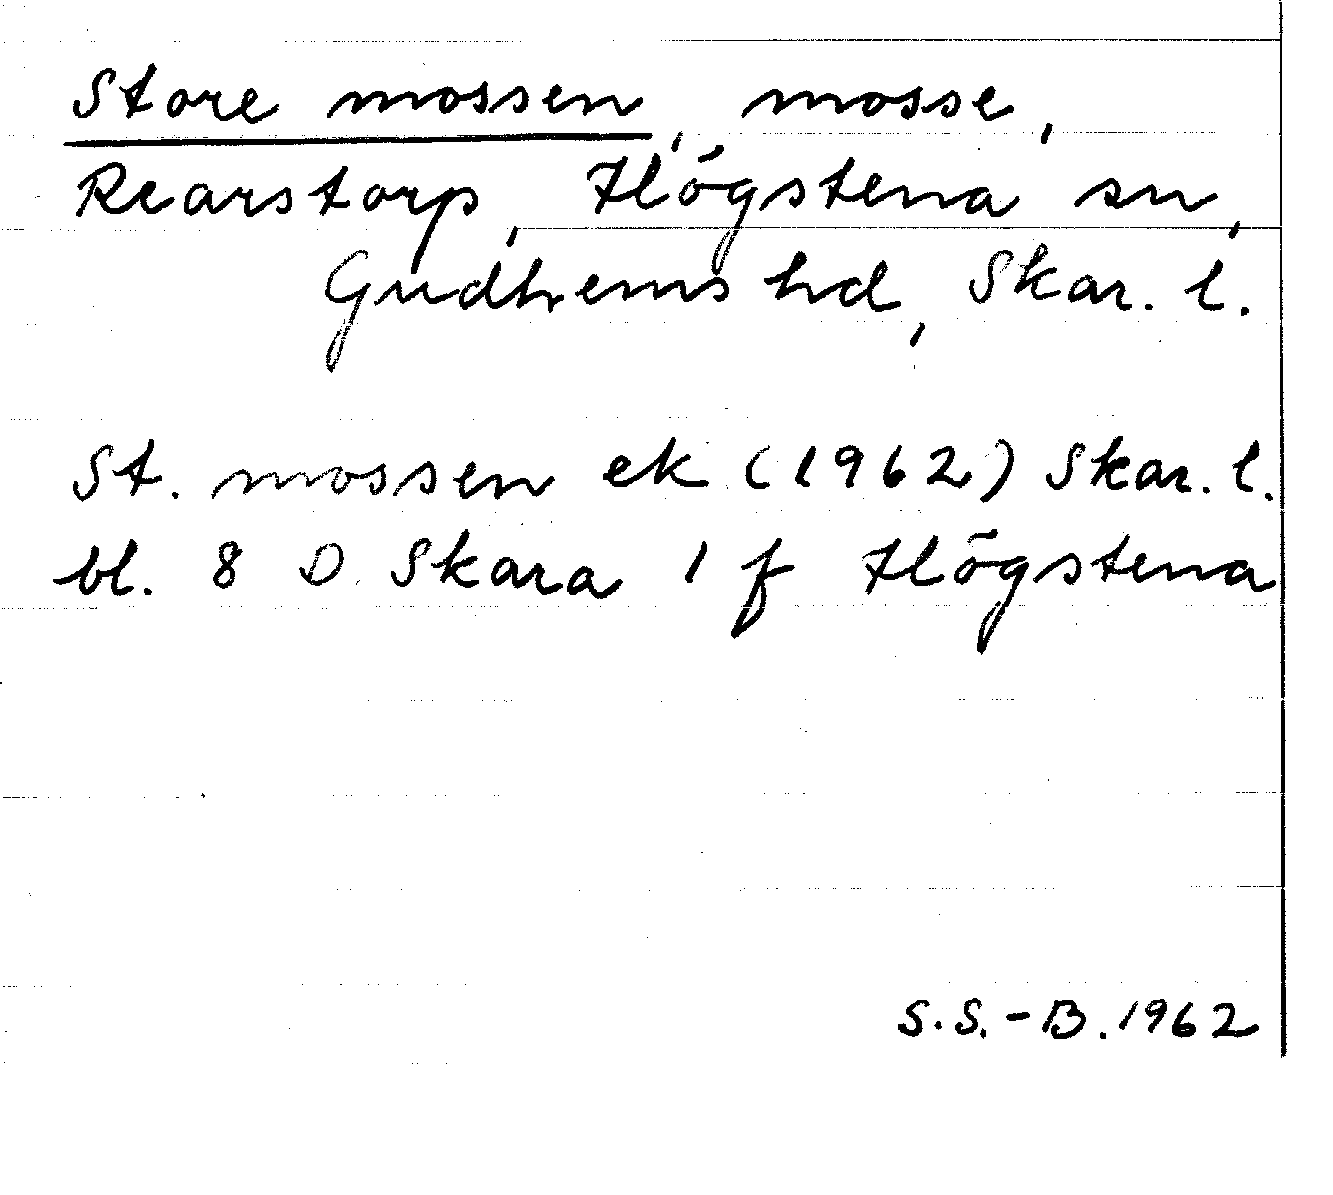 Store mossen, mosse,
Rearstorp, Högstena sn,
Gudhems hd, Skar. l.
St. mossen ek (1962) Skar. l.
bl. 8 D Skara 1 f Högstena
S.S.-B. 1962